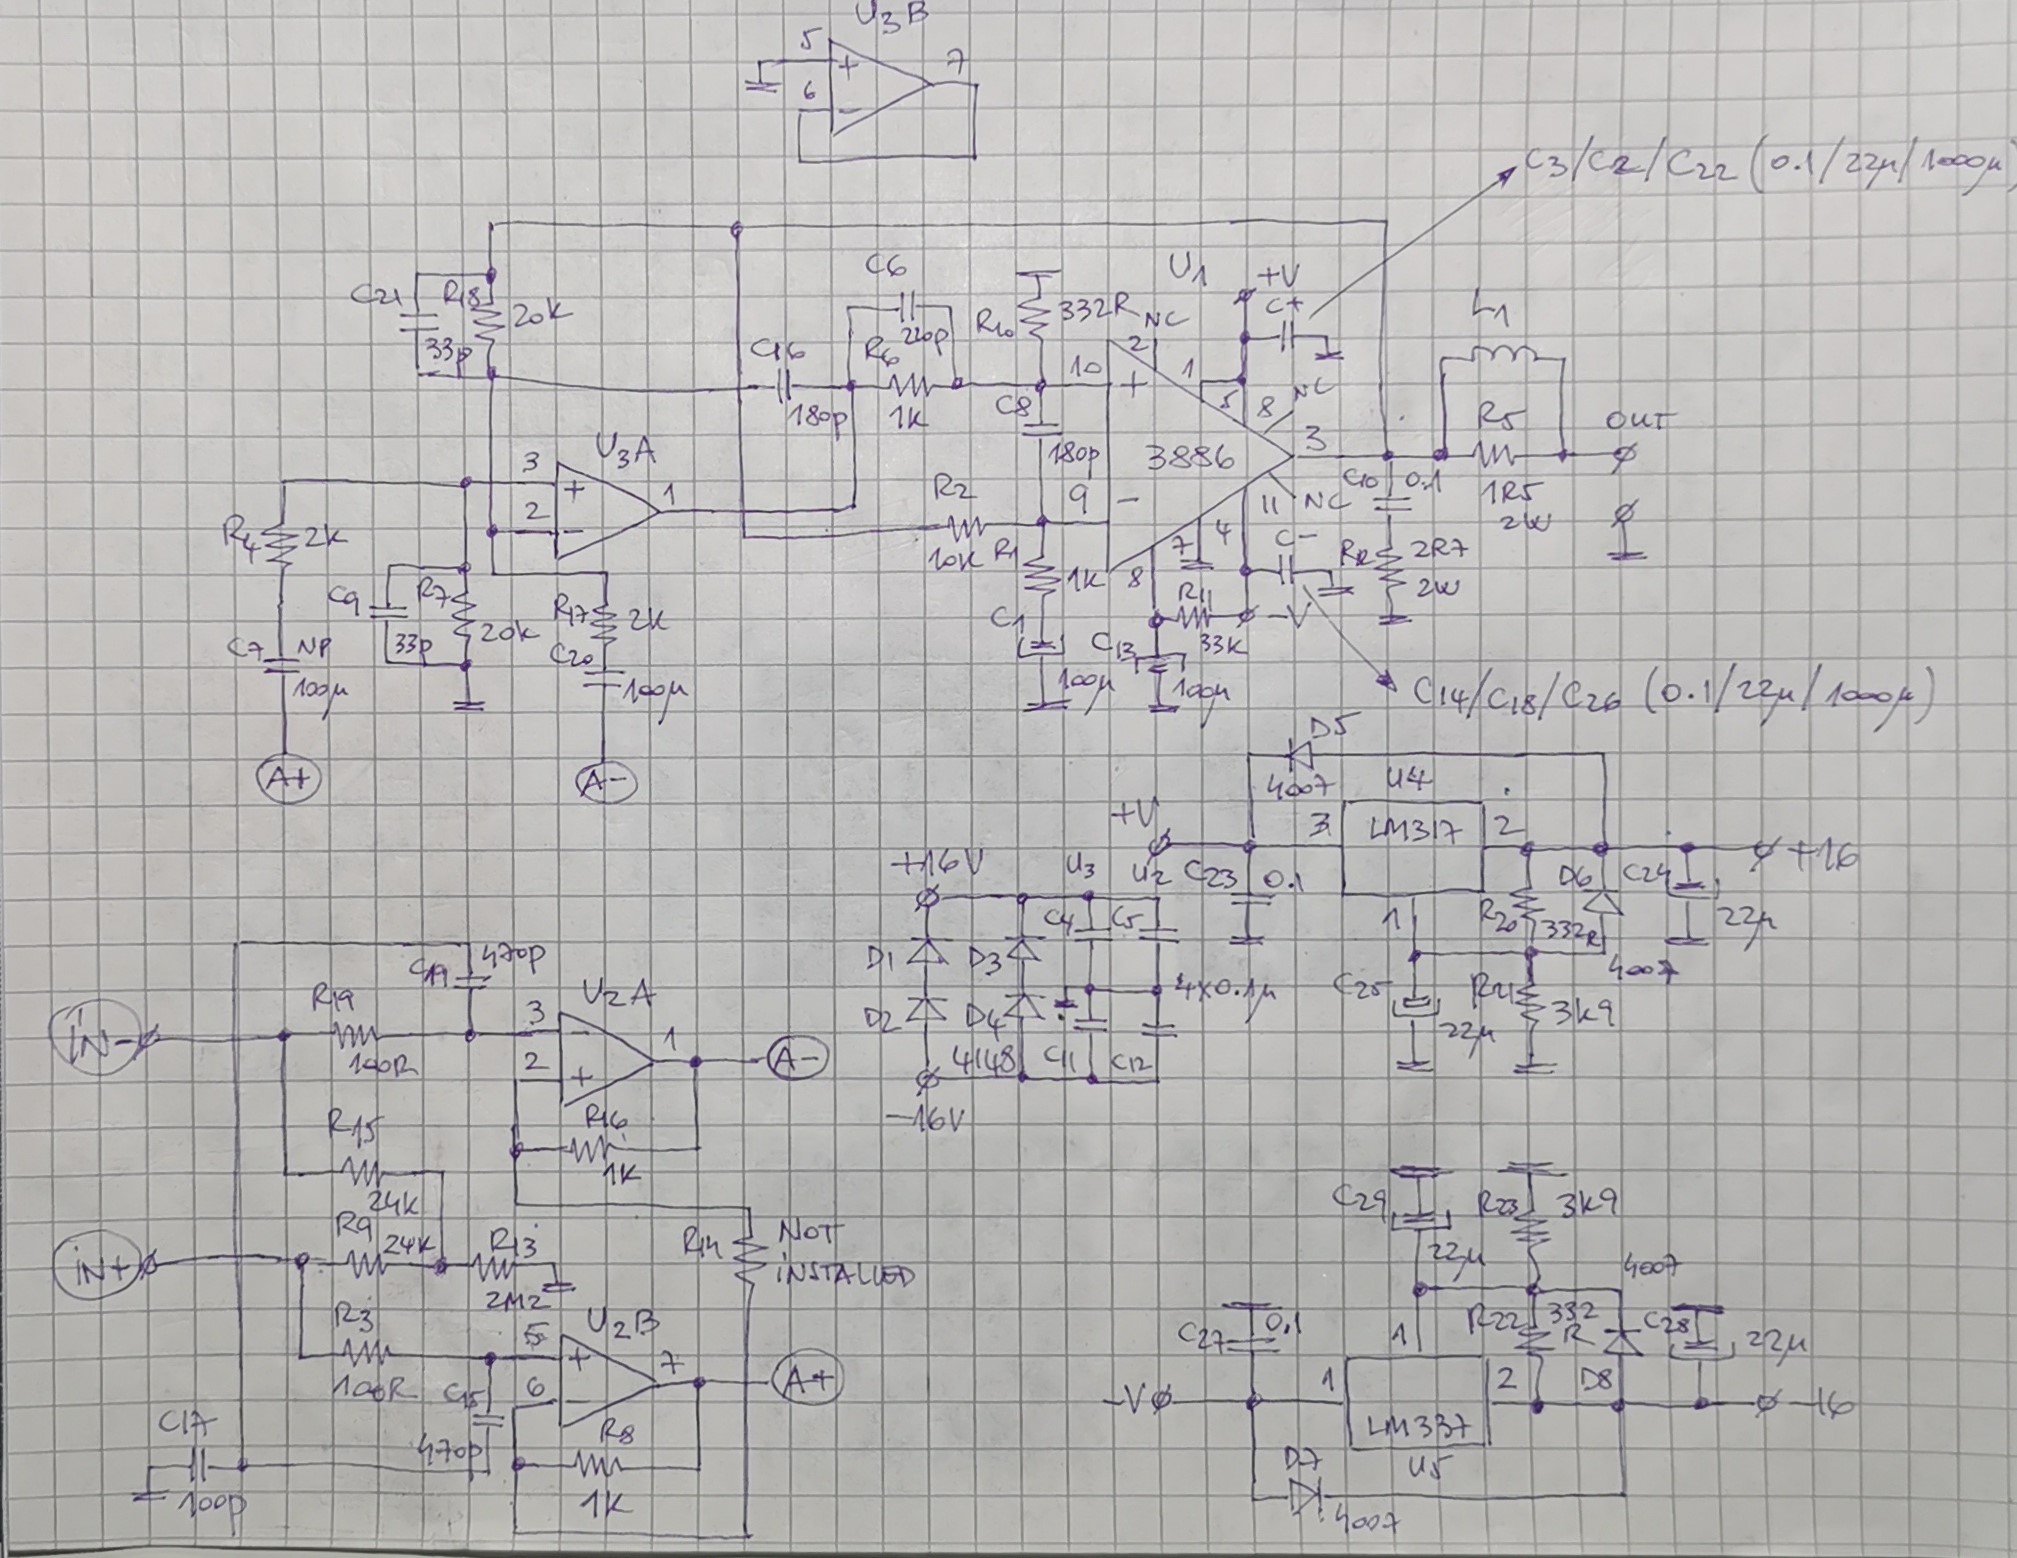 U3B
5
+
7
6
-
C3/C2/C22 (0.1/22µ/1000µ)
C21
R18
20K
33p
C6
220p
R10
332R
U1
+V
C+
L1
C16
180p
R6
1K
10
+
2
NC
1
5
8
NC
C8
180p
3886
3
R5
1R5
2W
OUT
U3A
3
+
2
-
1
R4
2K
R2
10K
9
-
R1
1K
C10
0.1
11
NC
4
7
8
C-
R12
2R7
2W
C9
33p
R7
20K
R17
2K
C7
NP
100µ
C20
100µ
C1
100µ
C13
100µ
R11
33K
-V
C14/C18/C26 (0.1/22µ/1000µ)
A+
A-
D5
4007
U4
+V
3
LM317
2
+16
+16V
U3
U2
C23
0.1
1
R20
332R
D6
4007
C24
22µ
D1
D3
C4
C5
D2
D4
4148
4x0.1µ
C11
C12
-16V
C25
22µ
R21
3K9
C19
470p
U2A
iN-
R19
100R
3
-
2
+
1
A-
R16
1K
R15
24K
R9
24K
R13
2M2
iN+
R14
NOT
iNSTALLED
R3
100R
U2B
5
+
6
-
7
A+
C15
470p
R8
1K
C17
100p
C29
22µ
R23
3K9
4007
C27
0.1
1
R22
332
R
C28
22µ
D8
-VØ
1
LM337
2
-16
U5
D7
4007